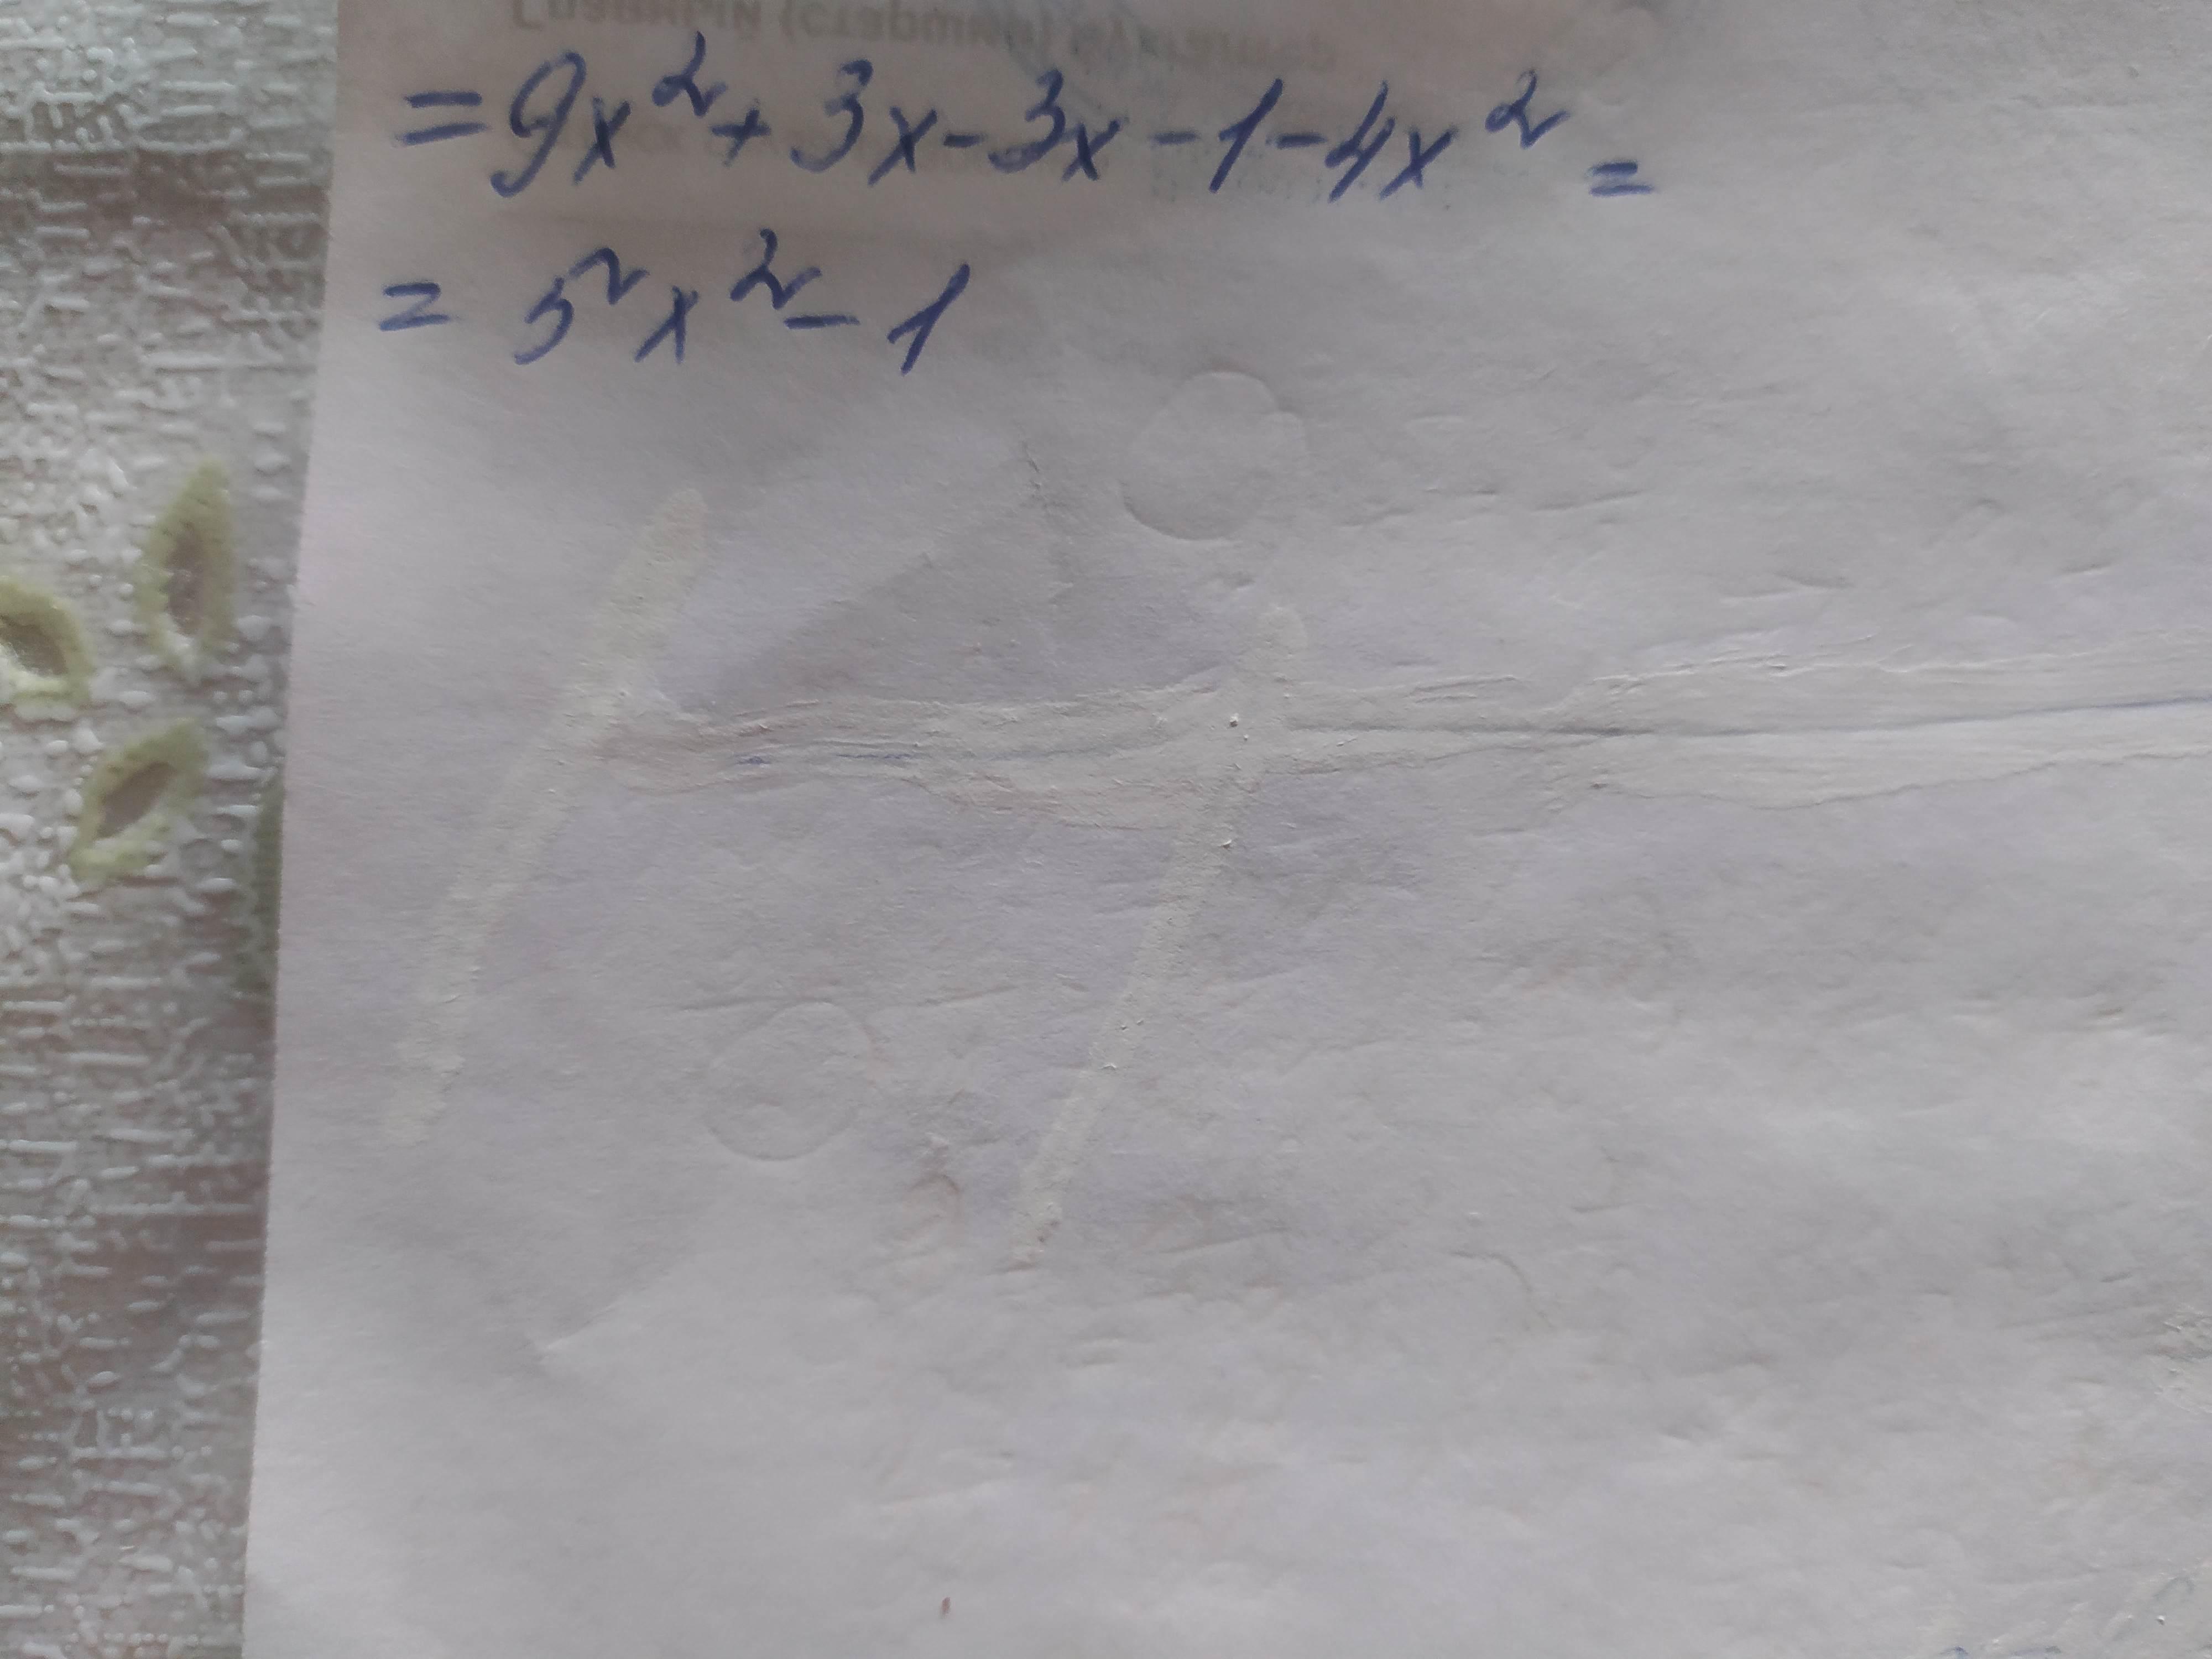 = 9x² + 3x - 3x - 1 - 4x² =
= 5x² - 1